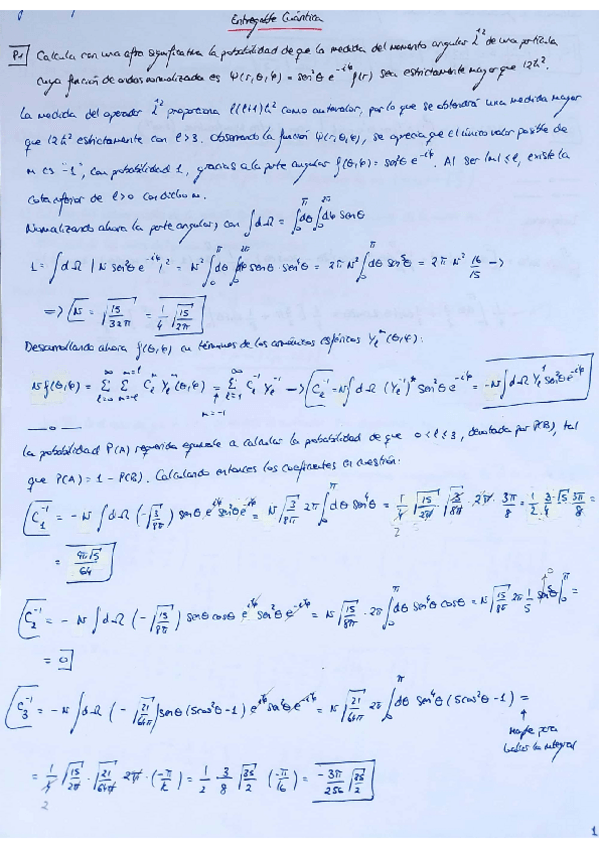 Entregable Cuántica
P1 Calcula con una cifra significativa la probabilidad de que la medida del momento angular L̂² de una partícula
cuya función de ondas normalizada es Ψ(r,θ,φ) = sen²θ e^{-iφ} f(r) sea estrictamente mayor que 12ħ².
La medida del operador L̂² proporciona l(l+1)ħ² como autovalor, por lo que se obtendrá una medida mayor
que 12ħ² estrictamente con l>3. Observando la función Ψ(r,θ,φ), se aprecia que el único valor posible de
m es "-1", con probabilidad 1, gracias a la parte angular f(θ,φ) = sen²θ e^{-iφ}. Al ser |m| ≤ l, existe la
cota inferior de l>0 con dicho m.
Normalizando ahora la parte angular, con ∫dΩ = ∫₀^π dθ ∫₀^{2π} dφ senθ
1 = ∫dΩ |N sen²θ e^{-iφ}|² = N² ∫₀^π ∫₀^{2π} senθ sen⁴θ = 2π N² ∫₀^π dθ sen⁵θ = 2π N² 16/15 →
=> N = √(15/32π) = 1/4 √(15/2π)
Desarrollando ahora f(θ,φ) en términos de los armónicos esféricos Y_l^m(θ,φ):
N f(θ,φ) = Σ_{l=0}^∞ Σ_{m=-l}^{m=l} C_l^m Y_l^m(θ,φ) = Σ_{l=1}^∞ C_l^{-1} Y_l^{-1} → C_l^{-1} = N∫dΩ (Y_l^{-1})* sen²θ e^{-iφ} = -N∫dΩ Y_l^1 sen²θ e^{-iφ}
m=-1
La probabilidad P(A) requerida equivale a calcular la probabilidad de que 0<l≤3, denotada por P(B), tal
que P(A) = 1 - P(B). Calculando entonces los coeficientes en cuestión:
C_1^{-1} = -N ∫dΩ (-√(3/8π)) senθ e^{iφ} sen²θ e^{-iφ} = N √(3/8π) 2π ∫₀^π dθ sen⁴θ = 1/4 √(15/2π) √(3/8π) · 2π · 3π/8 = 1/2 · 3/4 · √5 3π/8 =
2
= 9π√5/64
C_2^{-1} = -N ∫dΩ (-√(15/8π)) senθ cosθ e^{iφ} sen²θ e^{-iφ} = N √(15/8π) · 2π ∫₀^π dθ sen⁴θ cosθ = N √(15/8π) 2π 1/5 sen⁵θ|₀^π =
= 0
C_3^{-1} = -N ∫dΩ (-√(21/64π)) senθ (5cos²θ-1) e^{iφ} sen²θ e^{-iφ} = N √(21/64π) 2π ∫₀^π dθ sen⁴θ (5cos²θ-1) =
hallar la integral
= 1/4 √(15/2π) · √(21/64π) 2π · = 1/2 3/8 (-π/16) = -3π/256
2
1